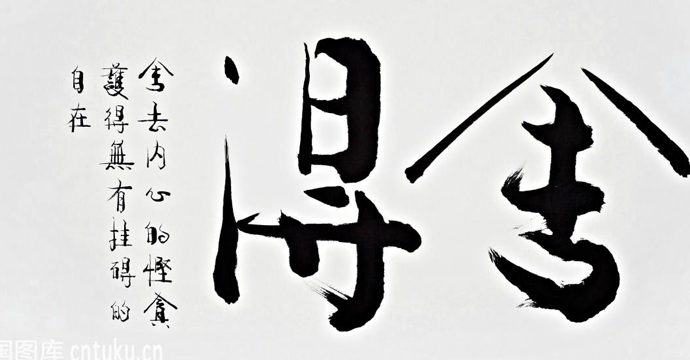 舍得
舍去内心的悭貪
獲得無有挂碍的
自在
国图库 cntuku.cn